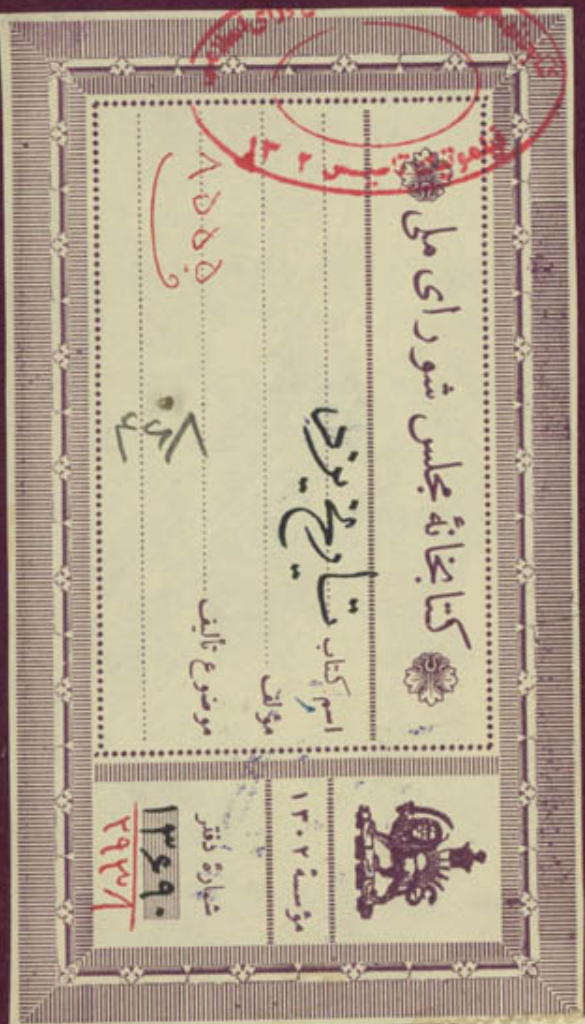 کتابخانهٔ مجلس شورای ملی
اسم کتاب تاریخ یزد
مؤلف
موضوع تألیف
۸۵۵۵
مؤسسهٔ ۱۳۰۲
شمارهٔ دفتر
۱۳۶۹۰
۲۹۳۸